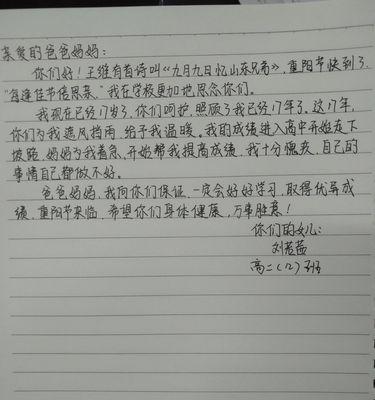 亲爱的爸爸妈妈:
你们好!王维有首诗叫《九月九日忆山东兄弟》,重阳节快到了,
"每逢佳节倍思亲。"我在学校更加地思念你们。
我现在已经17岁了,你们呵护,照顾了我已经17年了。这17年,
你们为我遮风挡雨,给予我温暖。我的成绩进入高中开始走下
坡路,妈妈为我着急,开始帮我提高成绩,我十分愧疚,自己的
事情自己都做不好。
爸爸妈妈,我向你们保证,一定会好好学习,取得优异成
绩,重阳节来临,希望你们身体健康,万事胜意!
你们的女儿:
刘若
高二(12)班